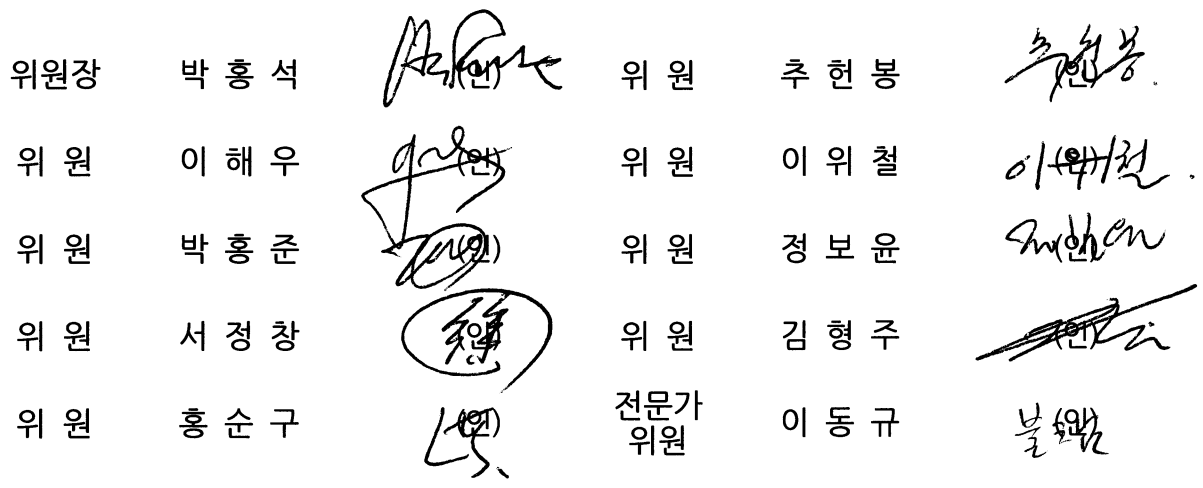 위원장 박 홍 석 (인) 위 원 추 헌 봉 (인) 추헌봉
위 원 이 해 우 (인) 위 원 이 위 철 (인) 이위철
위 원 박 홍 준 (인) 위 원 정 보 윤 (인)
위 원 서 정 창 (인) 위 원 김 형 주 (인)
위 원 홍 순 구 (인) 전문가 위원 이 동 규 (인)